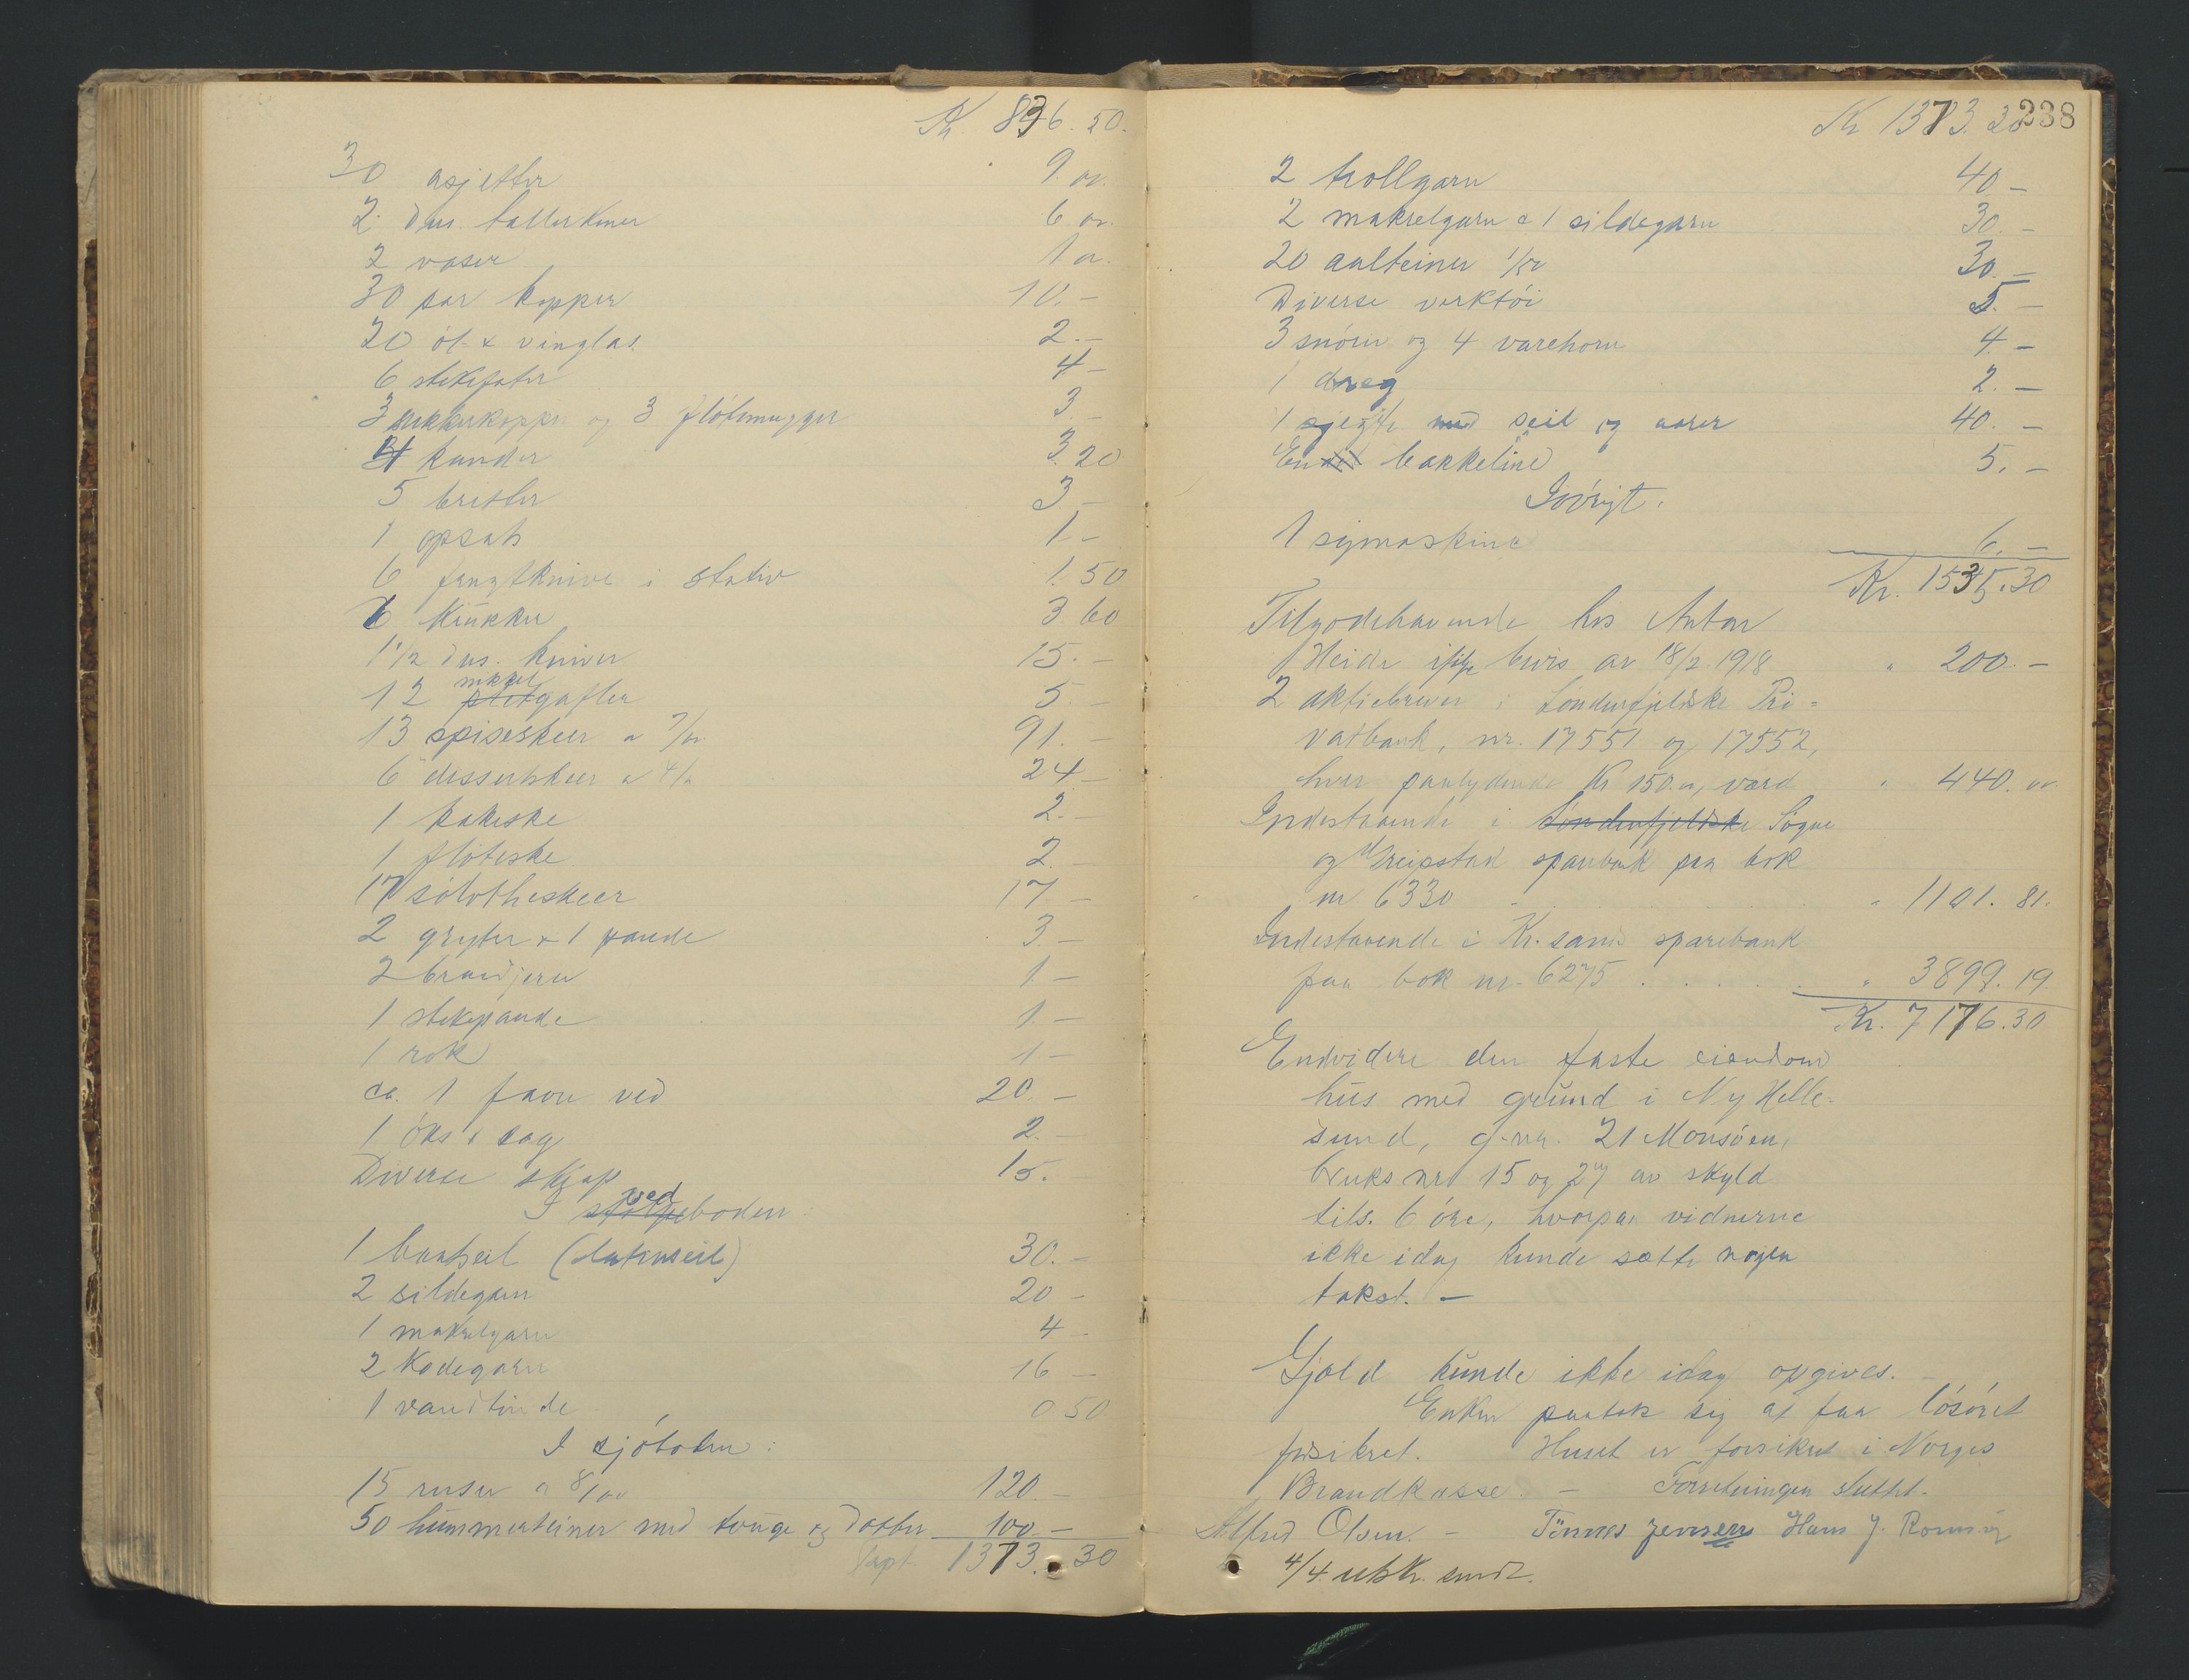 Kr 836.50.
30 asjetter 9.00
2 dus. tallerkener 6.00
2 vaser 1.00
30 par kopper 10.-
20 öl & vinglas 2.-
6 stekefater 4-
3 sukkerkopper og 3 flötemugger 3.-
4 kander 3.20
5 bretter 3-
1 opsats 1-
6 frugtknive i stativ 1.50
6 krukker 3.60
1 1/2 dus. kniver 15.-
nikkel
12 pletgafler 5.-
13 spiseskeer a 7/00 91.-
6 dessertskeer a 4/00 24.-
1 kakeske 2.-
1 flöteske 2.-
17 sölvtheskeer 17-
2 gryter & 1 pande 3.-
2 brandjern 1.-
1 stekepande 1.-
1 rok 1-
ca. 1 favn ved 20.-
1 öks & sag 2.-
Diverse skjap 15.-
ved
I stolpeboden:
1 baatseil (latinseil) 30.-
2 sildegarn 20-
1 makrelgarn 4-
2 kodegarn 16-
1 vandtinde 0.50
I sjöboden:
15 ruser a 8/00 120.-
50 hummerteiner med touge og dobber 100.-
Tapt. 1373.30
Kr 1373.30
238
2 trollgarn 40-
2 makrelgarn & 1 sildegarn 30.-
20 aalteiner 1/50 30.-
Diverse verktöi 5.-
3 snörer og 4 varehorn 4-
1 dreg 2.-
1 sjegte med seil og aarer 40.-
En bakkeline 5.-
Iövrigt.
1 symaskine 6.-
Kr. 1535.30
Tilgodehavende hos Anton
Heide ifölge bevis av 18/2 1918 " 200.-
2 aktiebrever i Söndenfjeldske Pri=
vatbank, nr. 17551 og 17552,
hver paalydende Kr 150.00, værd " 440.00
Indestaaende i Söndenfjeldske Sögne
og Greipstad sparebank paa bok
nr 6330 " 1101.81.
Indestaaende i Kr.sands sparebank
paa bok nr. 6275 . . . . . " 3899.19.
Kr. 7176.30
Endvidere den faste eiendom
hus med grund i Ny Helle-
sund, g.nr. 21 Monsöen,
bruks nr 15 og 27 av skyld
tils. 6 öre, hvorpaa vidnerne
ikke idag kunde sætte nogen
takst. -
Gjæld kunde ikke idag opgives. -
Enken paatok sig at faa lösöret
forsikret. Huset er forsikret i Norges
Brandkasse. - Forretningen sluttet.
Alfred Olsen. - Tönnes Jensen Hans J. Romsig
4/4 utskr. sendt.